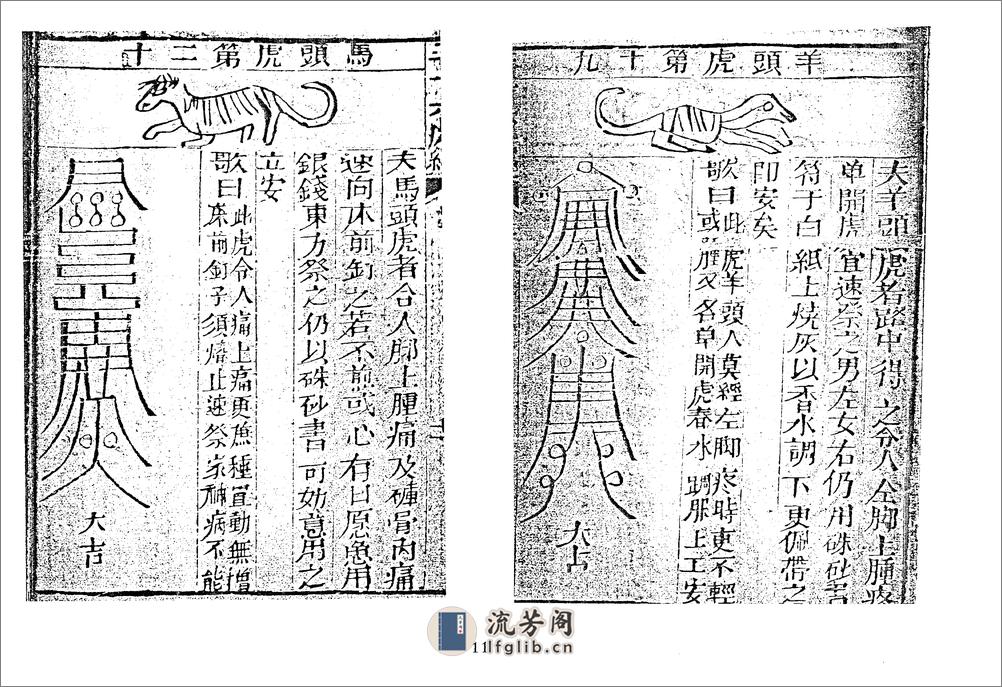 羊頭虎第十九
夫羊頭虎者路中得之令人全脚上腫疼
单開虎宜速祭之男左女右仍用硃砂書
符于白紙上燒灰以香水調下更佩帶之
即安矣
歌曰此虎羊頭人莫經左脚疼時更不輕
或雁又名皁開虎春水調服上工安
大吉
馬頭虎第二十
夫馬頭虎者合人脚上腫痛及膞骨内痛
速向床前釘之若不煎或心有日原急用
銀錢東方祭之仍以硃砂書可妙意用之
立安
歌曰此虎令人痛上痛更蕉種宣動無增
床前釘子須燒止速祭家神病不能
大吉
流芳阁
11lfglib.cn